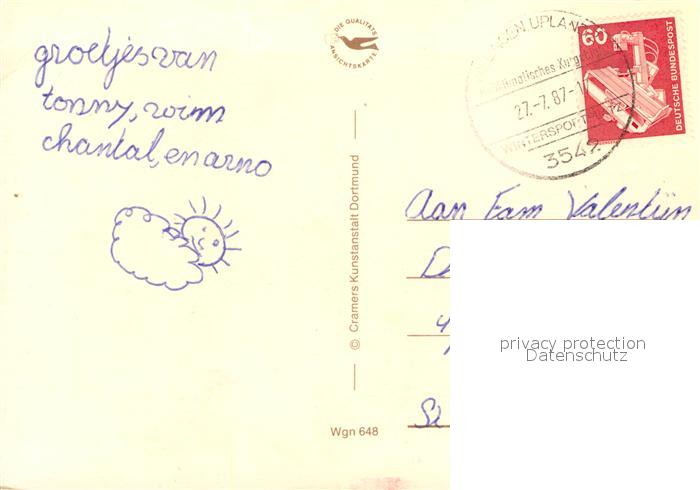 groetjes van
tonny, wim
chantal, en arno
DIE QUALITÄTS
ANSICHTSKARTE
© Cramers Kunstanstalt Dortmund
Wgn 648
UPLAND
27.-7.87-1
WINTERSPORTPLATZ
3542
60
DEUTSCHE BUNDESPOST
Aan Fam Valentijn
privacy protection
Datenschutz